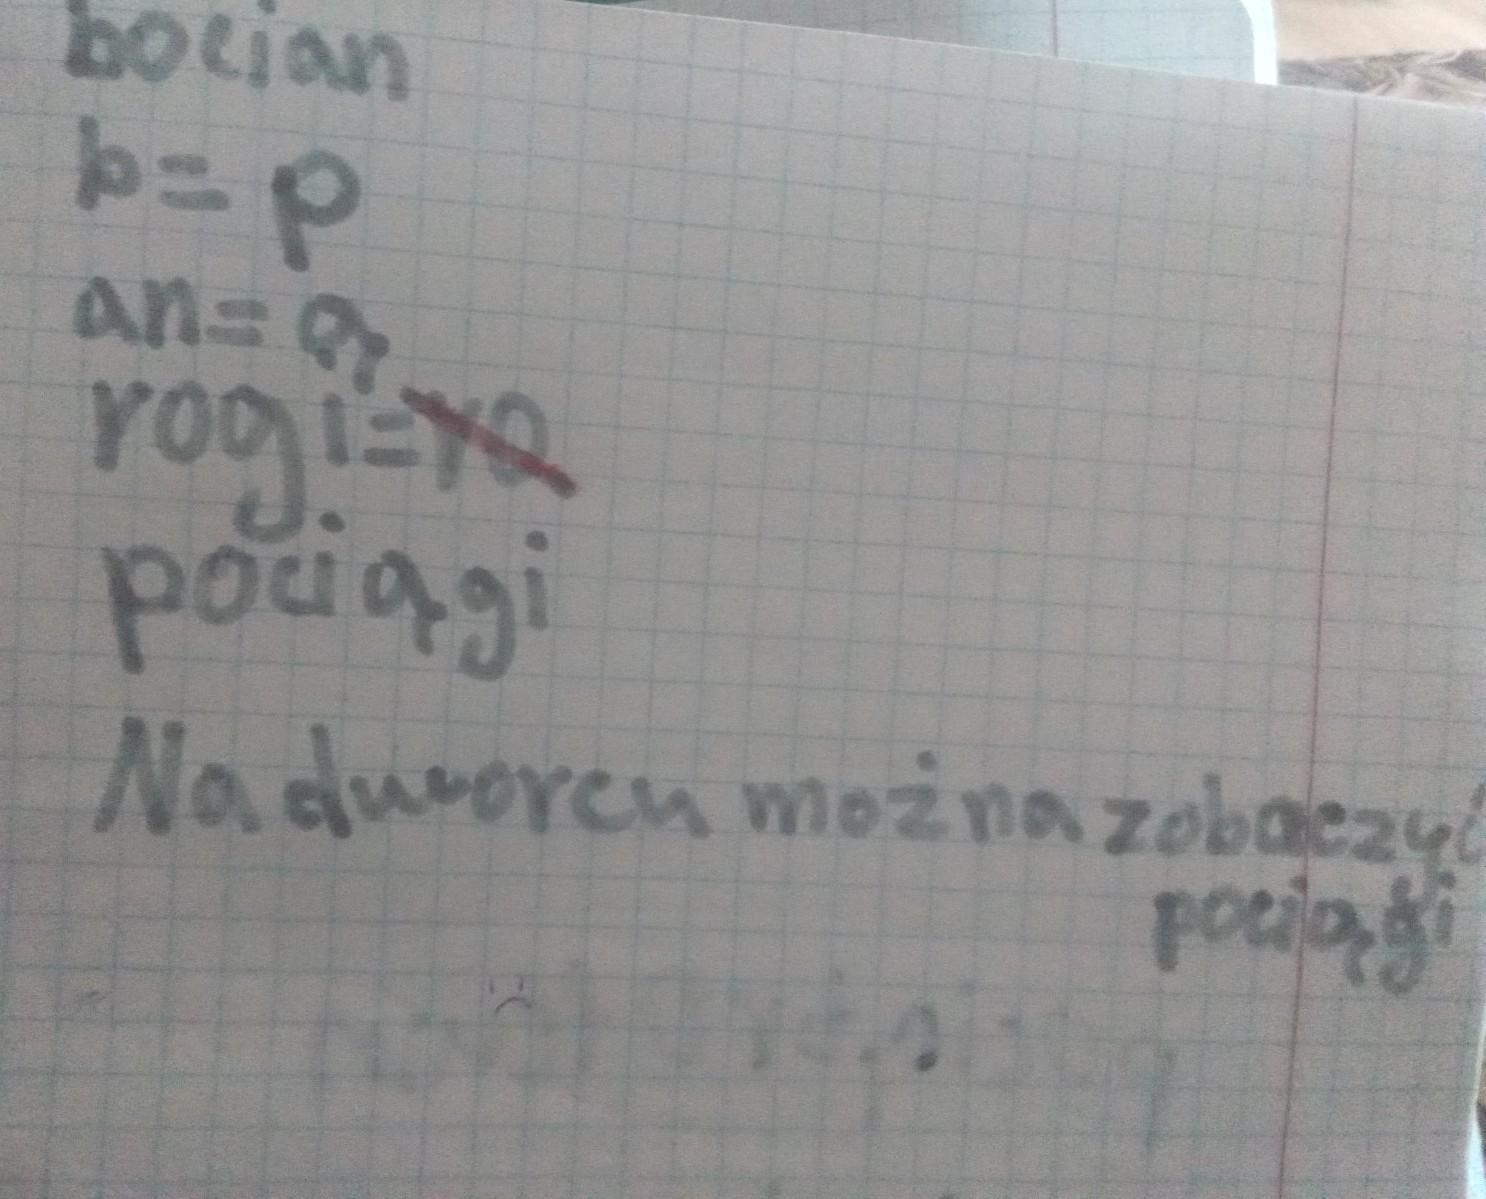 bocian
b= p
an= ą
rogi=ro
pociągi
Na dworcu można zobaczyć
pociągi